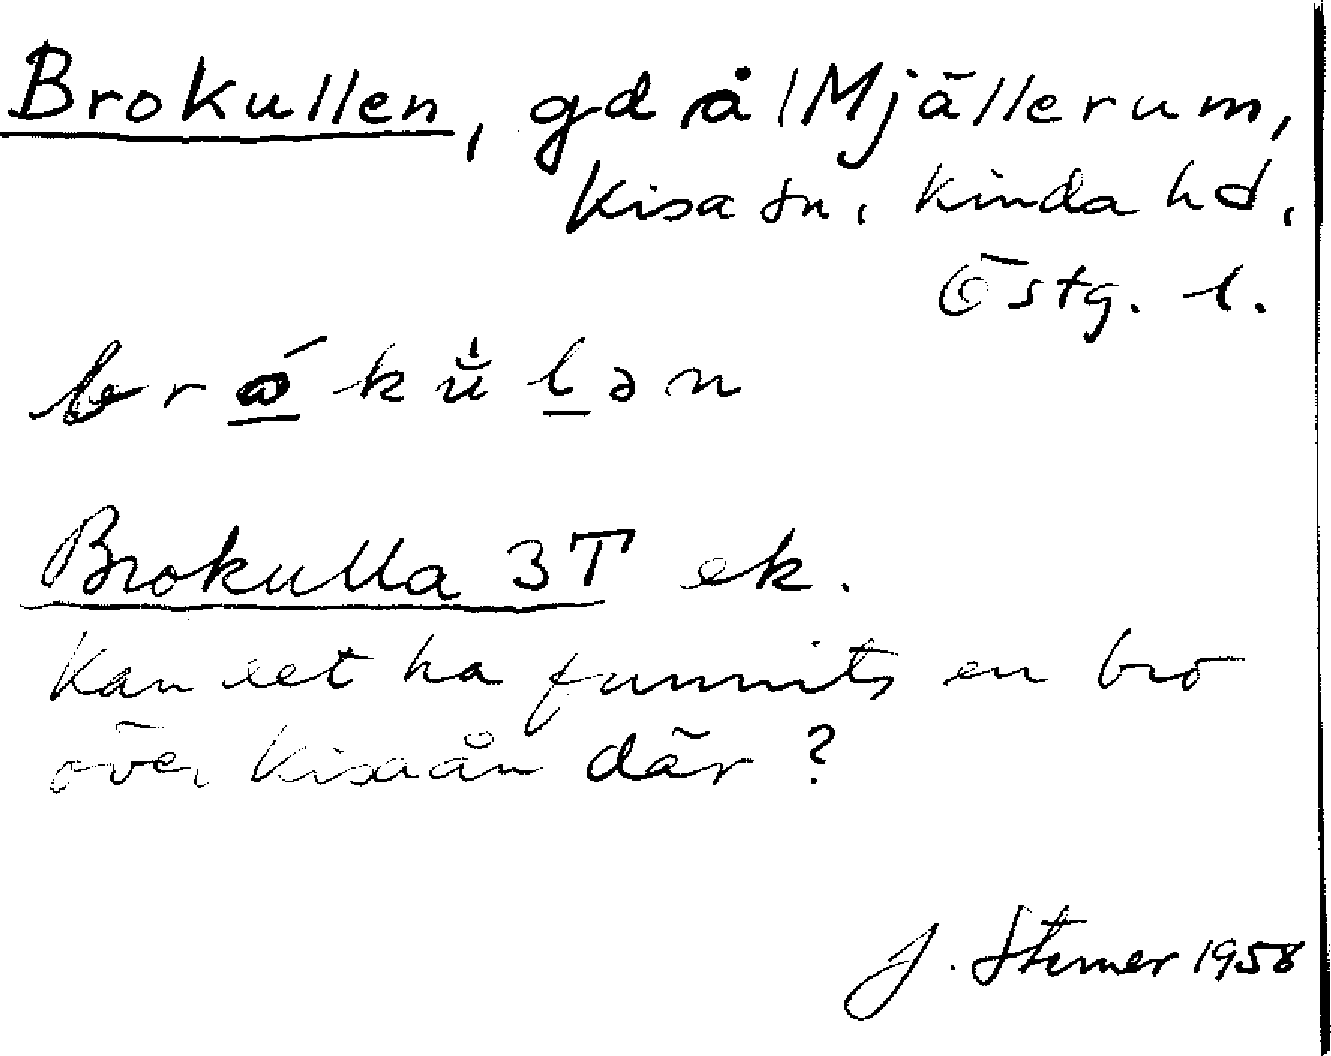 Brokullen, gd å /Mjällerum,
Kisa sn, Kinda hd,
Östg. l.
Brokulla 3T ek.
Kan det ha funnits en bro
över Kisaån där ?
J. Sterner 1958